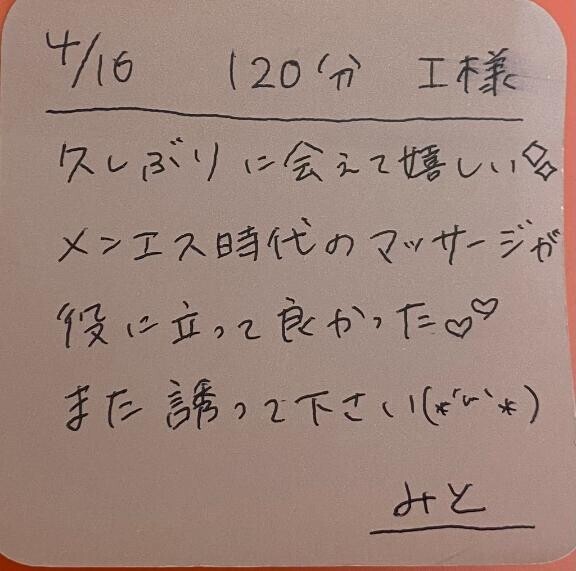 4/16 120分 I様
久しぶりに会えて嬉しい
メンエス時代のマッサージが
役に立って良かった♡♡
また誘って下さい(*´ᵕ`*)
みと